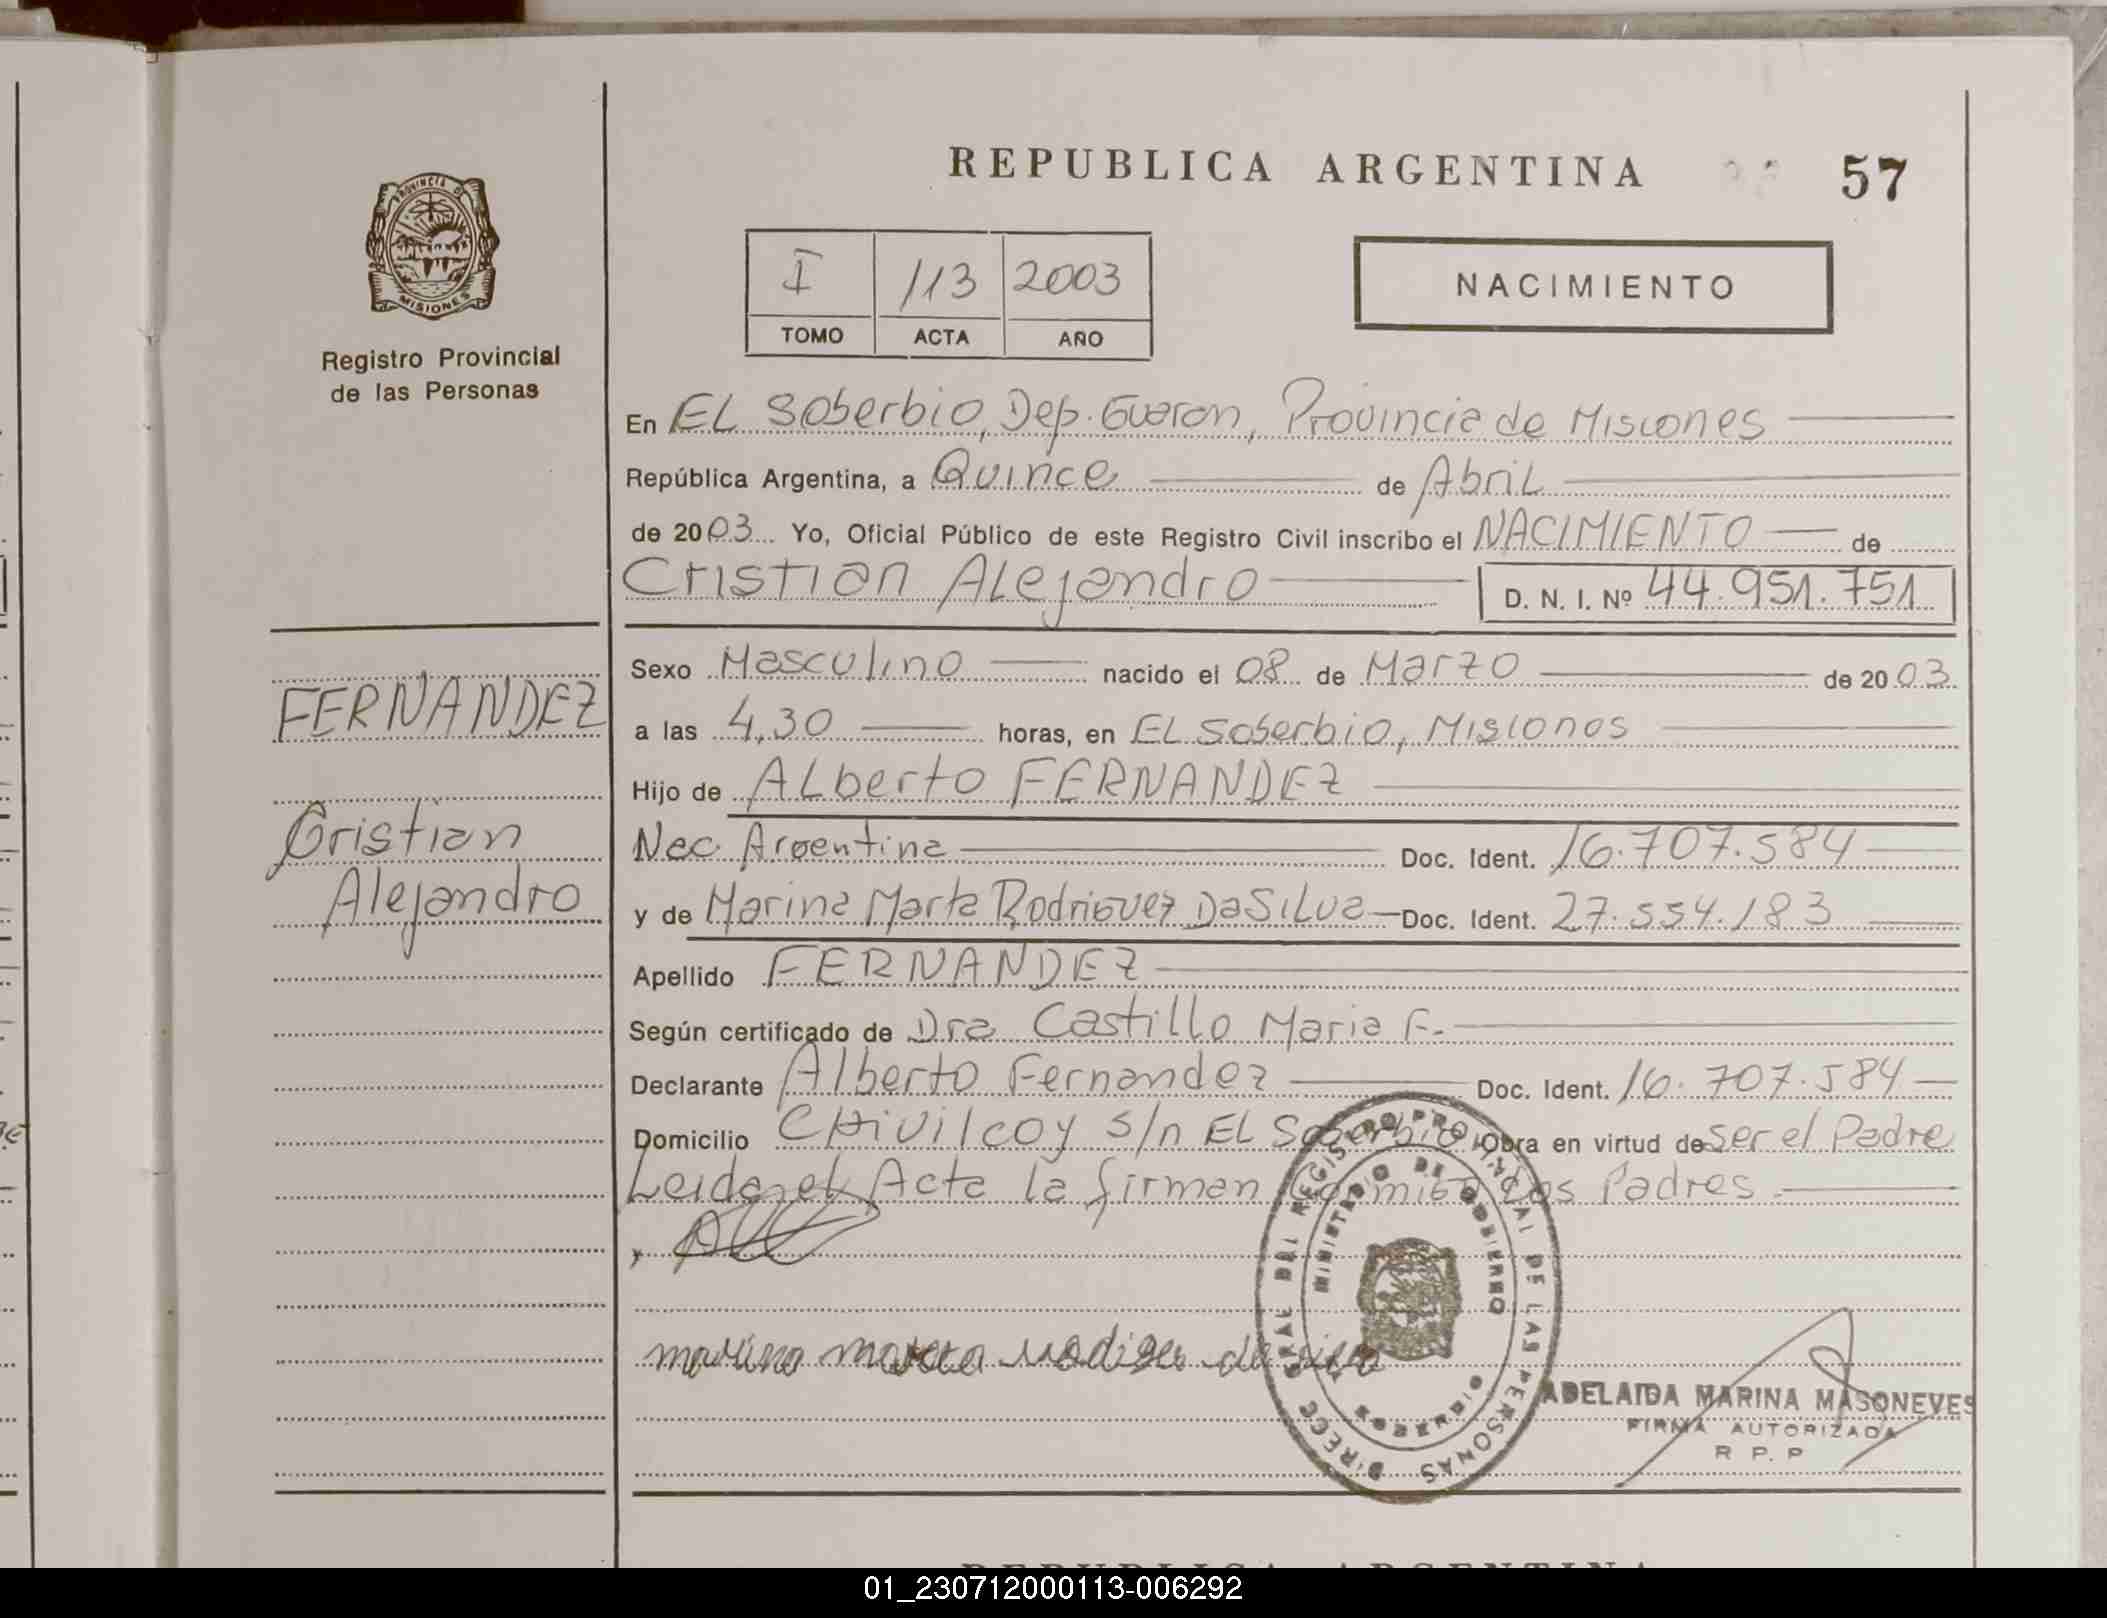 PROVINCIA DE
MISIONES
Registro Provincial
de las Personas
FERNANDEZ
Cristian
Alejandro
REPUBLICA ARGENTINA
57
I 113 2003
TOMO ACTA AÑO
NACIMIENTO
En EL Soberbio, Dep. Guaran, Provincia de Misiones
República Argentina, a Quince de Abril
de 2003 Yo, Oficial Público de este Registro Civil inscribo el NACIMIENTO de
Cristian Alejandro D. N. I. Nº 44.951.751
Sexo Masculino nacido el 08 de Marzo de 2003
a las 4,30 horas, en EL Soberbio, Misiones
Hijo de Alberto FERNANDEZ
Nac Argentina Doc. Ident. 16.707.584
y de Marina Marta Rodriguez DaSilva Doc. Ident. 27.554.183
Apellido FERNANDEZ
Según certificado de Dra Castillo Maria F.
Declarante Alberto Fernandez Doc. Ident. 16.707.584
Domicilio CHivilcoy s/n EL Soberbio Obra en virtud de ser el Padre
Leida el Acta la firman conmigo Los Padres.
DIRECC. GRAL DEL REGISTRO PROVINCIAL DE LAS PERSONAS
MINISTERIO DE GOBIERNO
SOBERBIO
ADELAIDA MARINA MASONEVES
FIRMA AUTORIZADA
R P. P
REPUBLICA ARGENTINA
01_230712000113-006292